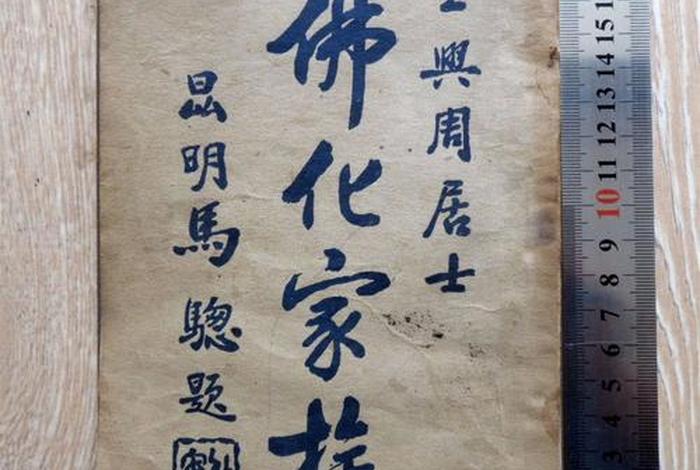 興周居士
佛化家
昆明馬驄題
15
14
13
12
11
10
9
8
7
6
5
4
3